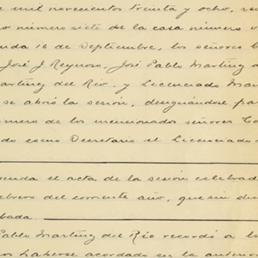 mil novecientos treinta y ocho,
número siete de la casa número
16 de Septiembre, los señores
José J. Reynoso, José Pablo Martínez
Martínez del Río, y Licenciado
se abrió la sesión, designándose
de los mencionados señores
como Secretario el Licenciado
el acta de la sesión
del corriente año, que sin
Pablo Martínez del Río recordó a
haberse acordado en la